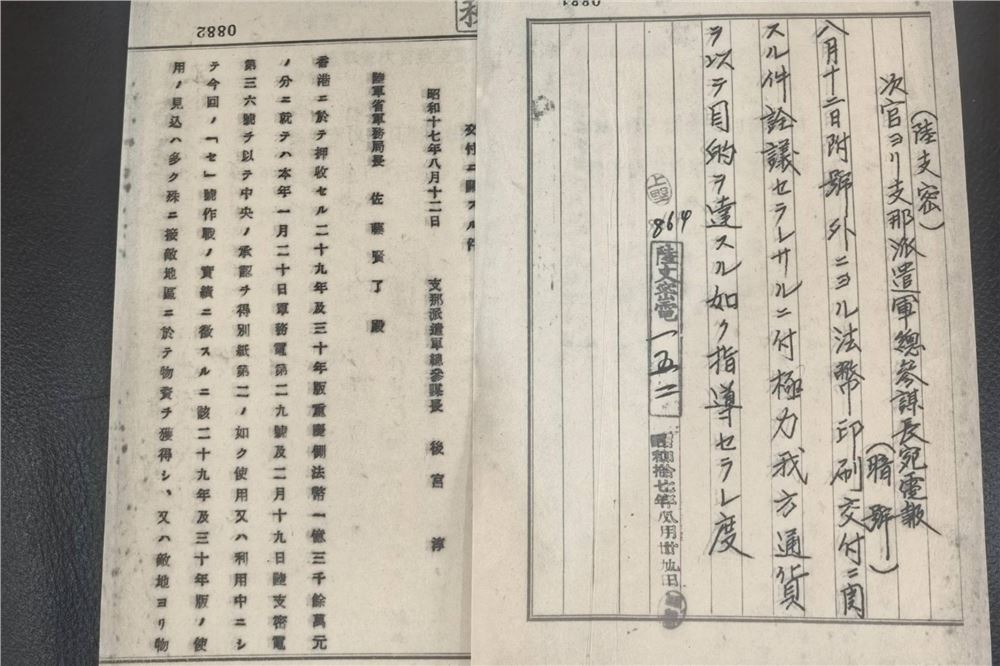 0881
(陸支密)
次官ヨリ支那派遣軍總參謀長宛電報
(暗號)
八月十二日附號外ニヨル法幣印刷交付ニ関
スル件詮議セラレサルニ付極力我方通貨
ヲ以テ目的ヲ達スル如ク指導セラレ度
864
陸支密電一五二
昭和拾七年八月廿九日
0882
交付ニ關スル件
昭和十七年八月十二日 支那派遣軍總參謀長 後宮 淳
陸軍省軍務局長 佐藤賢了 殿
香港ニ於テ押收セル二十九年及三十年版重慶側法幣一億三千餘萬元
ノ分ニ就テハ本年一月二十日軍務電第二九號及二月十九日陸支密電
第三六號ヲ以テ中央ノ承認ヲ得別紙第二ノ如ク使用又ハ利用中ニシ
テ今回ノ「セ」號作戰ノ實績ニ徵スルニ該二十九年及三十年版ノ使
用ノ見込ハ多ク殊ニ接敵地區ニ於テ物資ヲ獲得シ、又ハ敵地ヨリ物